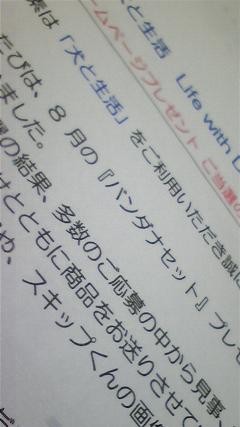 と生活 Life with
ームページプレゼント ご当選の
は「犬と生活」をご利用いただき誠に
たびは、8月の『バンダナセット』プレ
ました。
の結果、多数のご応募の中から見事、
とともに商品をお送りさせて
や、スキップくんの画